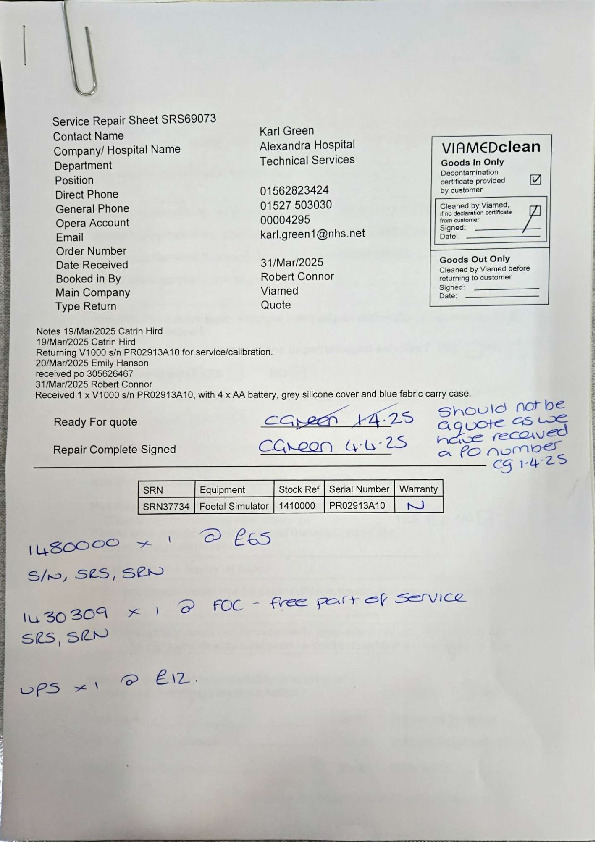 Service Repair Sheet SRS69073
Contact Name Karl Green
Company/ Hospital Name Alexandra Hospital
Department Technical Services
Position
Direct Phone 01562823424
General Phone 01527 503030
Opera Account 00004295
Email karl.green1@nhs.net
Order Number
Date Received 31/Mar/2025
Booked in By Robert Connor
Main Company Viamed
Type Return Quote
VIAMEDclean
Goods In Only
Decontamination
certificate provided
by customer
Cleaned by Viamed,
if no declaration certificate
from customer
Signed:
Date:
Goods Out Only
Cleaned by Viamed before
returning to customer
Signed:
Date:
Notes 19/Mar/2025 Catrin Hird
19/Mar/2025 Catrin Hird
Returning V1000 s/n PR02913A10 for service/calibration.
20/Mar/2025 Emily Hanson
received po 305626467
31/Mar/2025 Robert Connor
Received 1 x V1000 s/n PR02913A10, with 4 x AA battery, grey silicone cover and blue fabric carry case.
Ready For quote CGreen 1.4.25
Repair Complete Signed CGreen 4.4.25
Should not be
a quote as we
have received
a PO number
CG 1.4.25
SRN Equipment Stock Ref Serial Number Warranty
SRN37734 Foetal Simulator 1410000 PR02913A10 N
1480000 x 1 @ £65
S/N, SRS, SRN
1430309 x 1 @ FOC - free part of service
SRS, SRN
UPS x 1 @ £12.